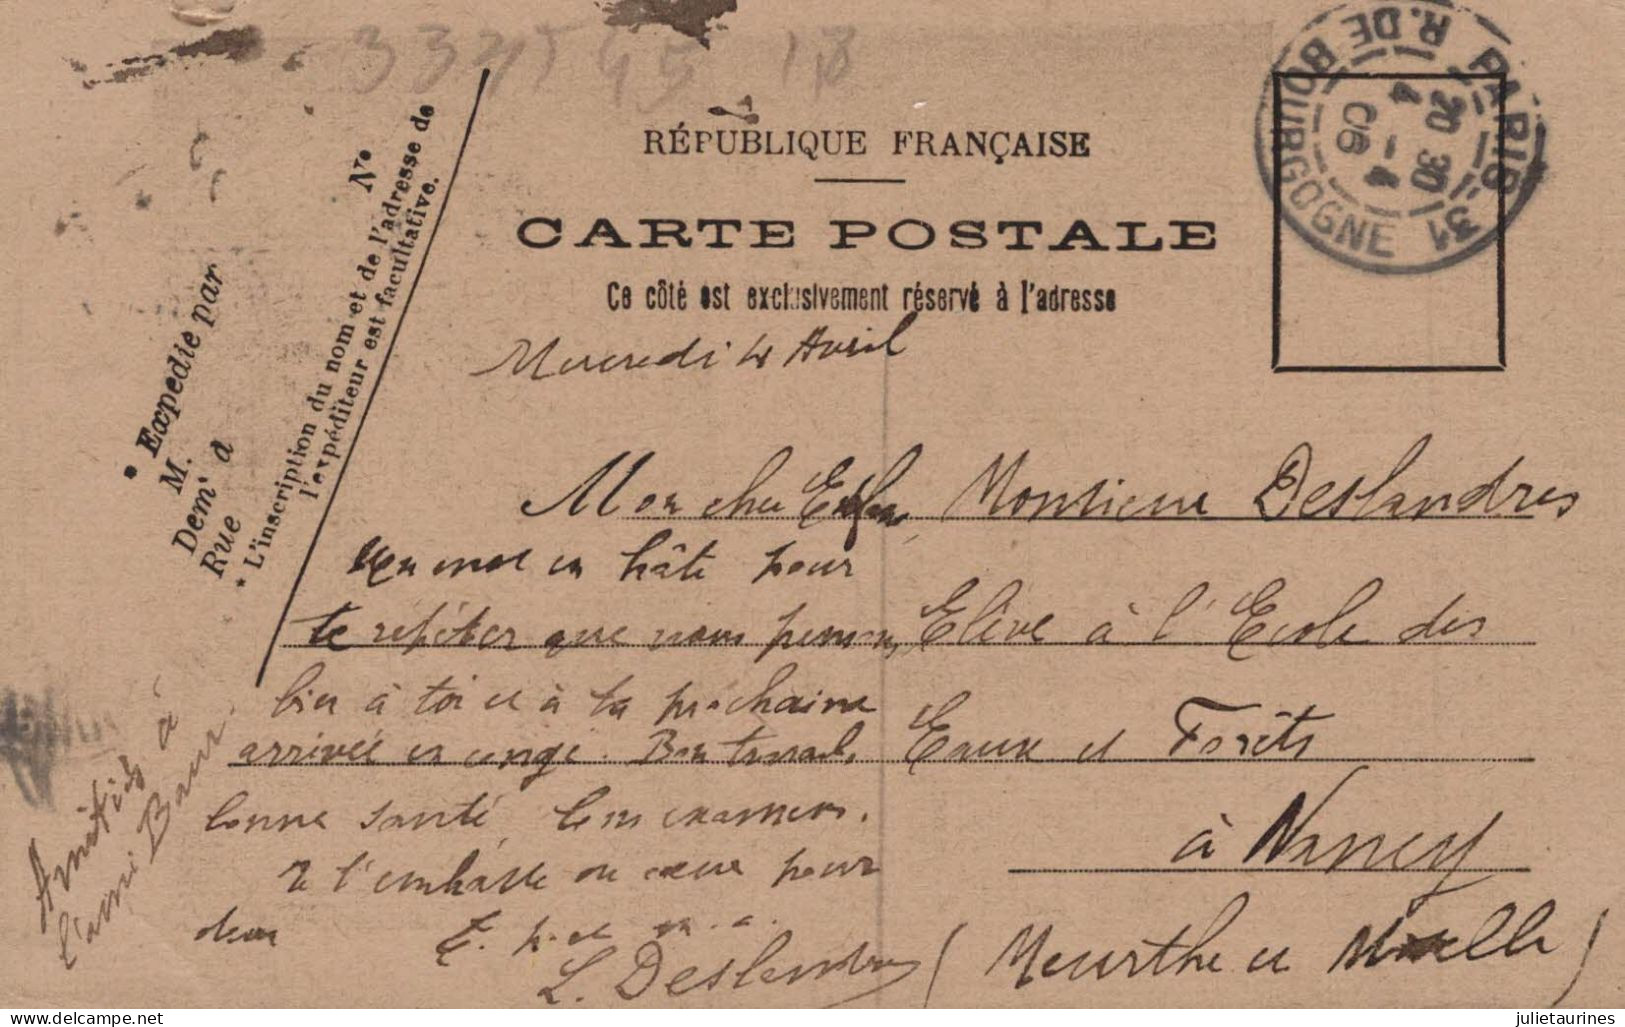 RÉPUBLIQUE FRANÇAISE
CARTE POSTALE
Ce côté est exclusivement réservé à l'adresse
PARIS 31
R. DE BOURGOGNE
20 30
4 - 4
06
* Expédié par
M.
Dem' à
Rue
N°
* L'inscription du nom et de l'adresse de
l'expéditeur est facultative.
Mercredi 4 Avril
Mon cher Enfant
un mot en hâte pour
te répéter que nous pensons
bien à toi et à ta prochaine
arrivée en congé. Bon travail,
bonne santé, bons examens.
Je t'embrasse du cœur pour
deux
T. p. et m. a.
L. Deslandres
Amitiés à
l'ami Baur.
Monsieur Deslandres
Elève à l'Ecole des
Eaux et Forêts
à Nancy
(Meurthe et Moselle)
delcampe.net
julietaurines